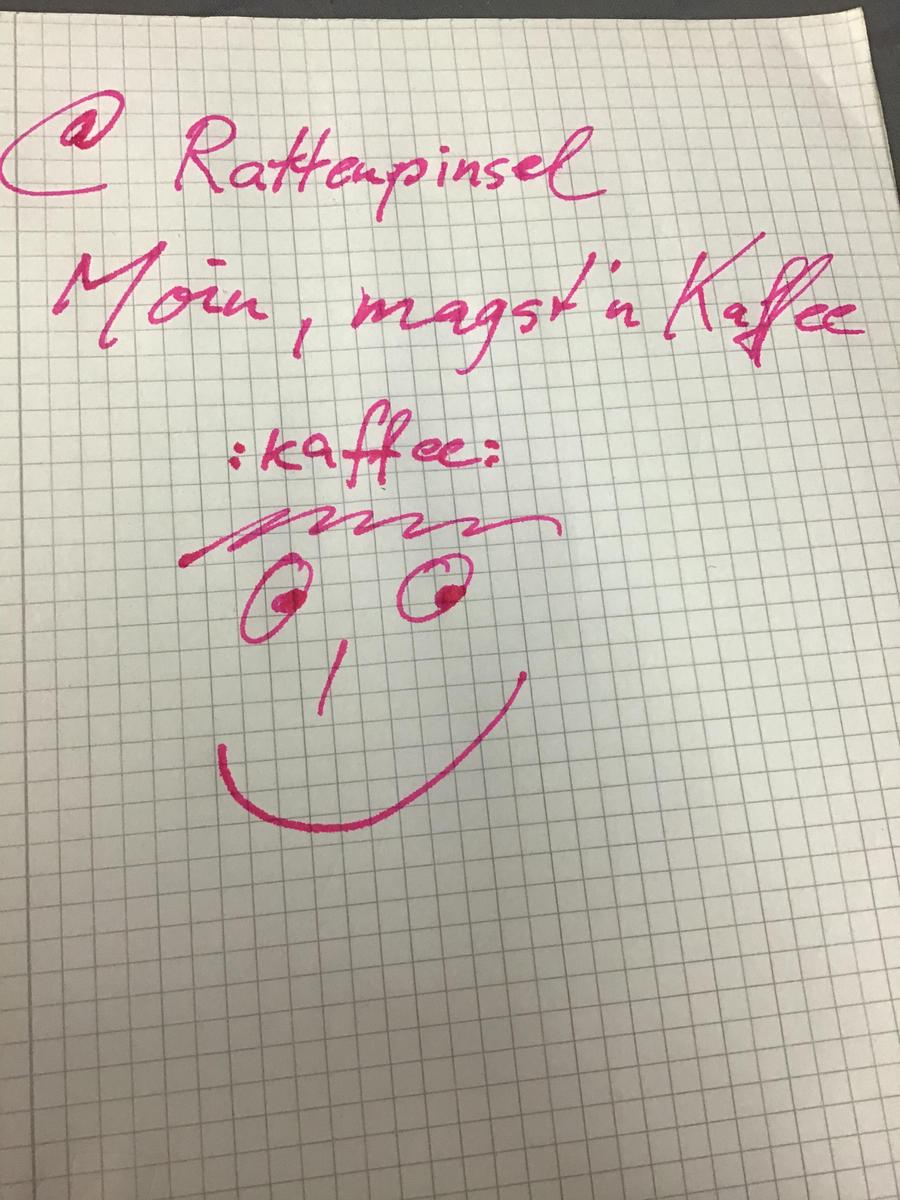 @ Rattenpinsel
Moin, magst 'n Kaffee
:kaffee: